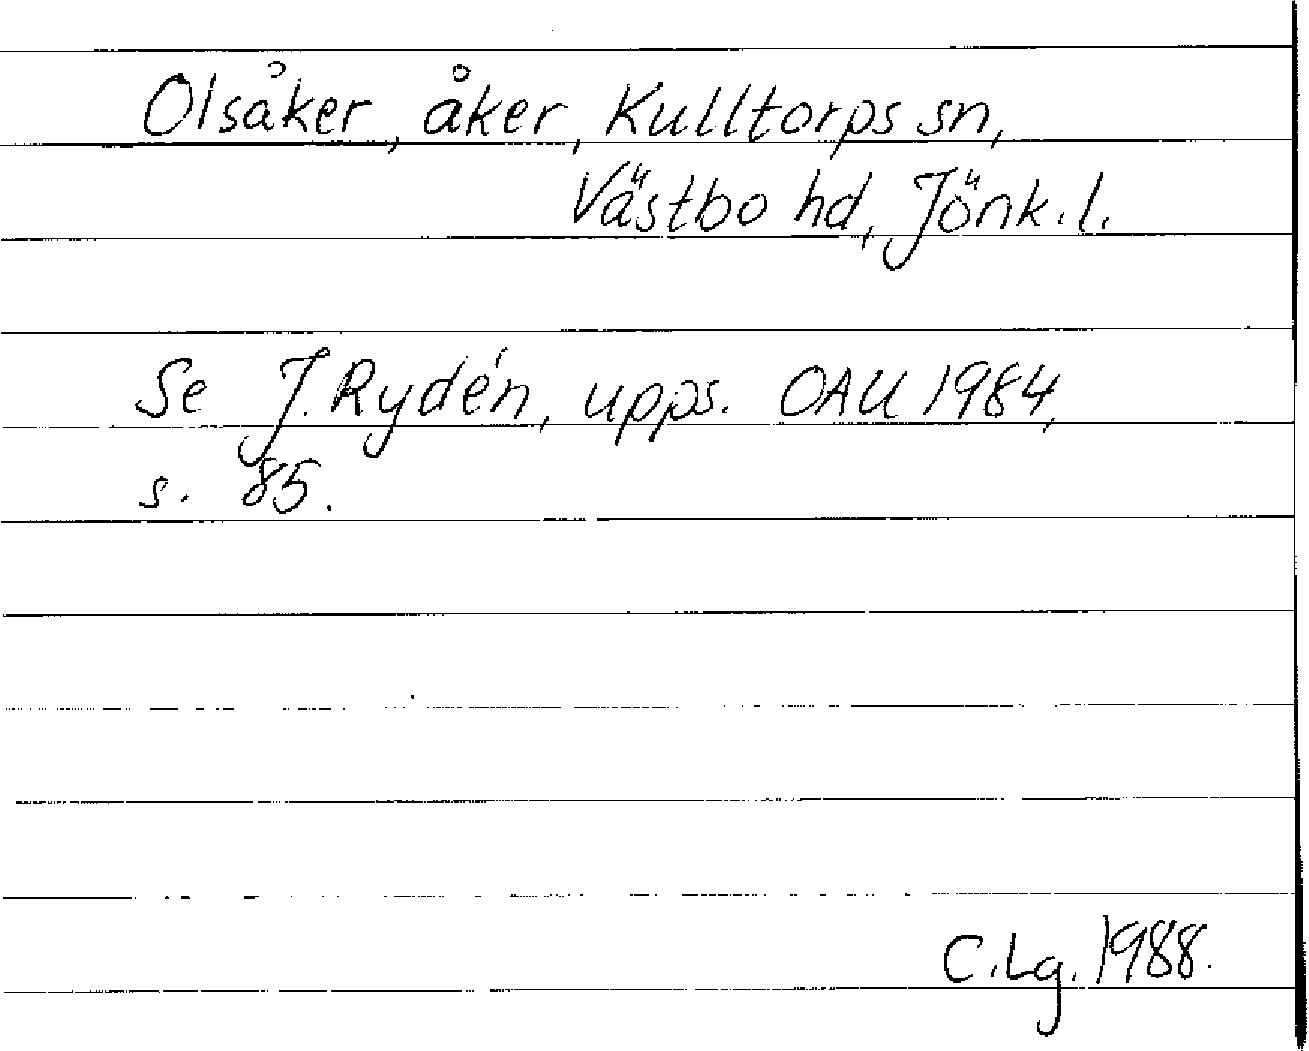 Olsåker, åker, Kulltorps sn,
Västbo hd, Jönk. l.
Se J. Rydén, upps. OAU 1984,
s. 85.
C. Lg. 1988.